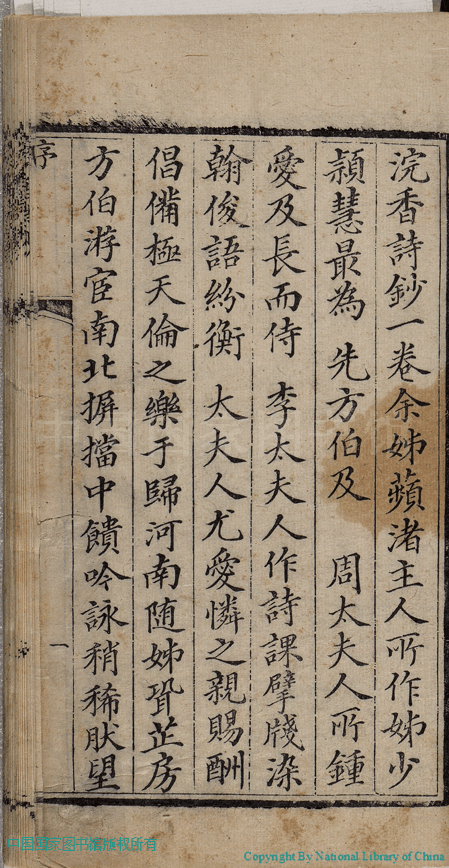 浣香詩鈔一卷余姊蘋渚主人所作姊少
頴慧最為 先方伯及 周太夫人所鍾
愛及長而侍 李太夫人作詩課擘牋染
翰俊語紛衡 太夫人尤愛憐之親賜酬
倡備極天倫之樂于歸河南随姊壻芷房
方伯游宦南北摒擋中饋吟詠稍稀肰望
序
一
中国国家图书馆版权所有
Copyright By National Library of China